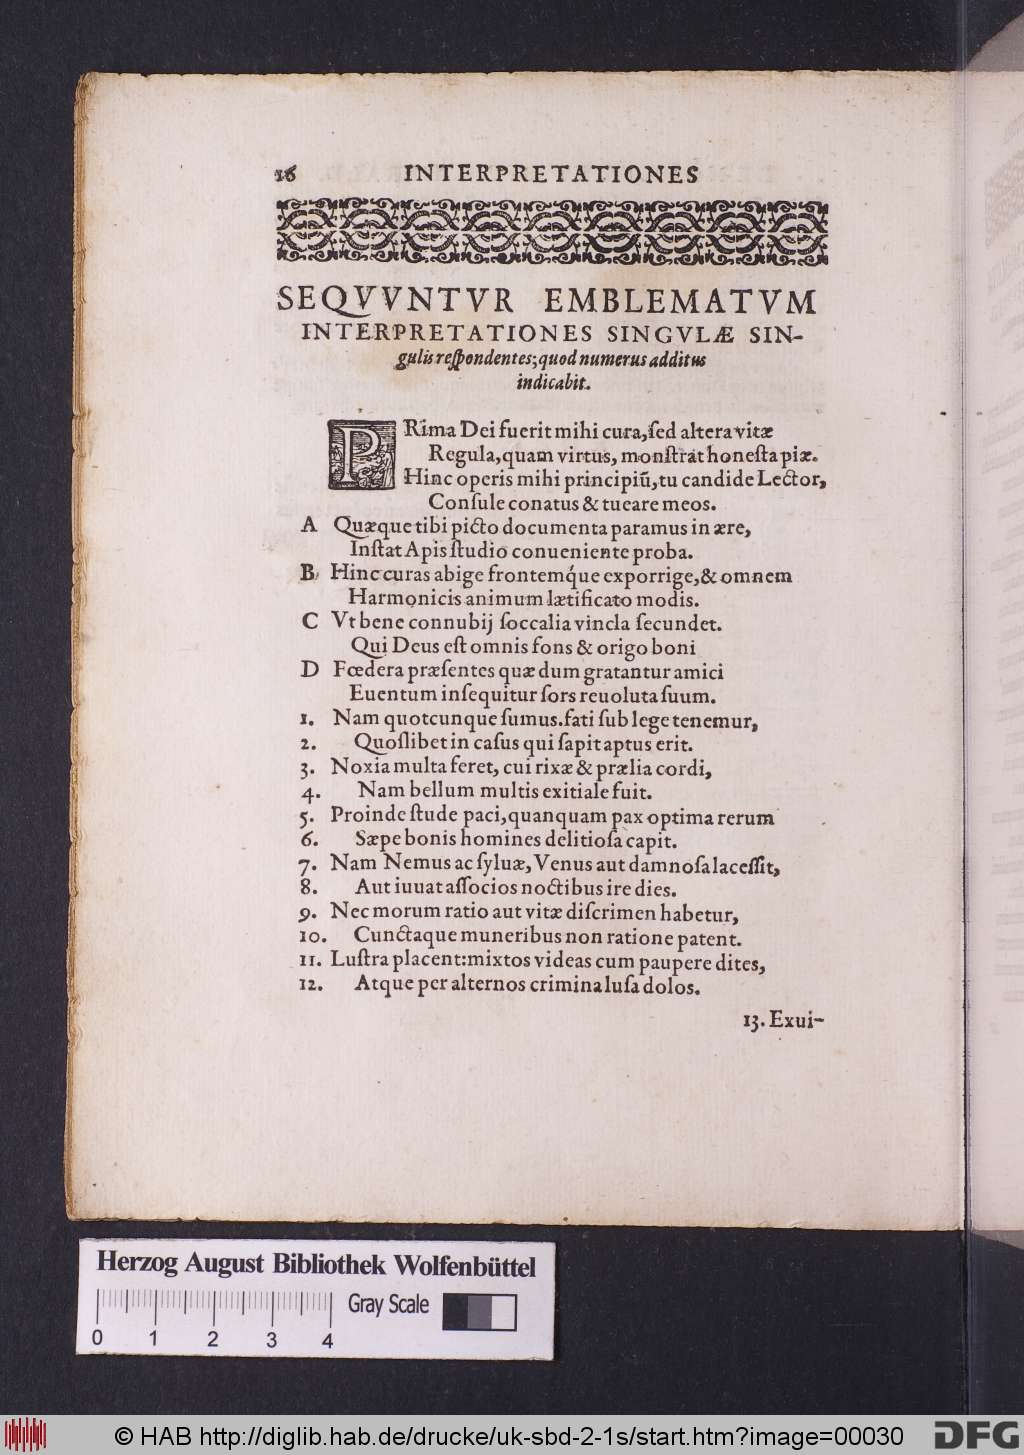 16 INTERPRETATIONES
SEQVVNTVR EMBLEMATVM
INTERPRETATIONES SINGVLÆ SIN-
gulis reſpondentes; quod numerus additus
indicabit.
PRima Dei fuerit mihi cura, ſed altera vitæ
Regula, quam virtus, monſtrat honeſta piæ.
Hinc operis mihi principiũ, tu candide Lector,
Conſule conatus & tueare meos.
A Quæque tibi picto documenta paramus in ære,
Inſtat Apis ſtudio conueniente proba.
B Hinc curas abige frontemq́ue exporrige, & omnem
Harmonicis animum lætificato modis.
C Vt bene connubij ſoccalia vincla ſecundet.
Qui Deus eſt omnis fons & origo boni
D Fœdera præſentes quæ dum gratantur amici
Euentum inſequitur ſors reuoluta ſuum.
1. Nam quotcunque ſumus. fati ſub lege tenemur,
2. Quoſlibet in caſus qui ſapit aptus erit.
3. Noxia multa feret, cui rixæ & prælia cordi,
4. Nam bellum multis exitiale fuit.
5. Proinde ſtude paci, quanquam pax optima rerum
6. Sæpe bonis homines delitioſa capit.
7. Nam Nemus ac ſyluæ, Venus aut damnoſa laceſſit,
8. Aut iuuat aſſocios noctibus ire dies.
9. Nec morum ratio aut vitæ diſcrimen habetur,
10. Cunctaque muneribus non ratione patent.
11. Luſtra placent: mixtos videas cum paupere dites,
12. Atque per alternos crimina luſa dolos.
13. Exui-
Herzog August Bibliothek Wolfenbüttel
Gray Scale
0 1 2 3 4
© HAB http://diglib.hab.de/drucke/uk-sbd-2-1s/start.htm?image=00030
DFG